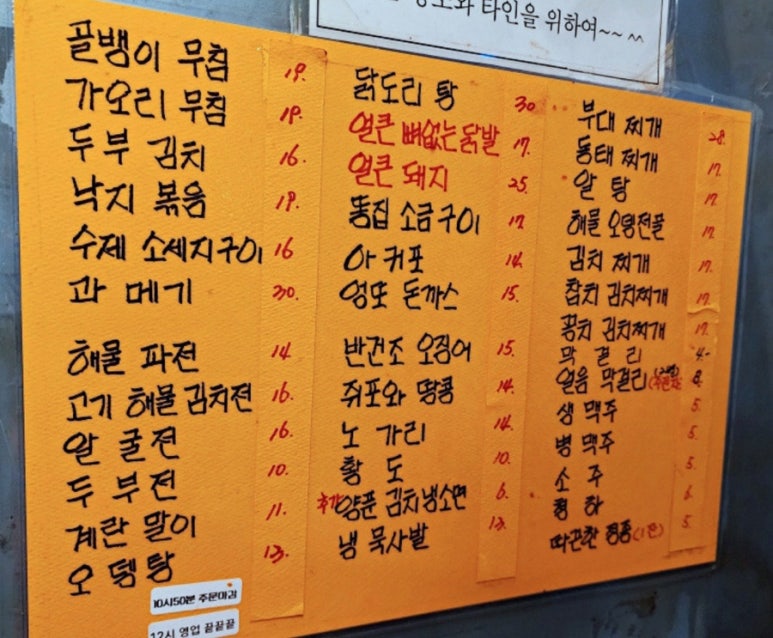 경오와 타인을 위하여~~ ^^
골뱅이 무침 19.
가오리 무침 19.
두부 김치 16.
낙지 볶음 19.
수제 소세지구이 16
과메기 30.
해물 파전 14
고기 해물 김치전 16.
알 굴전 16.
두부전 10.
계란 말이 11.
오뎅탕 13.
닭도리탕 30
얼큰 뼈없는 닭발 17.
얼큰 돼지 25.
똥집 소금구이 17
아귀포 14.
엉또 돈까스 15.
반건조 오징어 15.
쥐포와 땅콩 14.
노가리 14.
황도 10.
추가 양푼 김치냉소면 6.
냉 묵사발 13.
부대 찌개 28.
동태 찌개 17.
알탕 17.
해물 오뎅전골 17.
김치 찌개 17.
참치 김치찌개 17.
꽁치 김치찌개 17.
막걸리 4-
얼음 막걸리 8.
생맥주 5.
병맥주 5.
소주 5.
청하 6.
따끈한 정종(1잔) 5.
10시50분 주문마감
12시 영업 끝끝끝